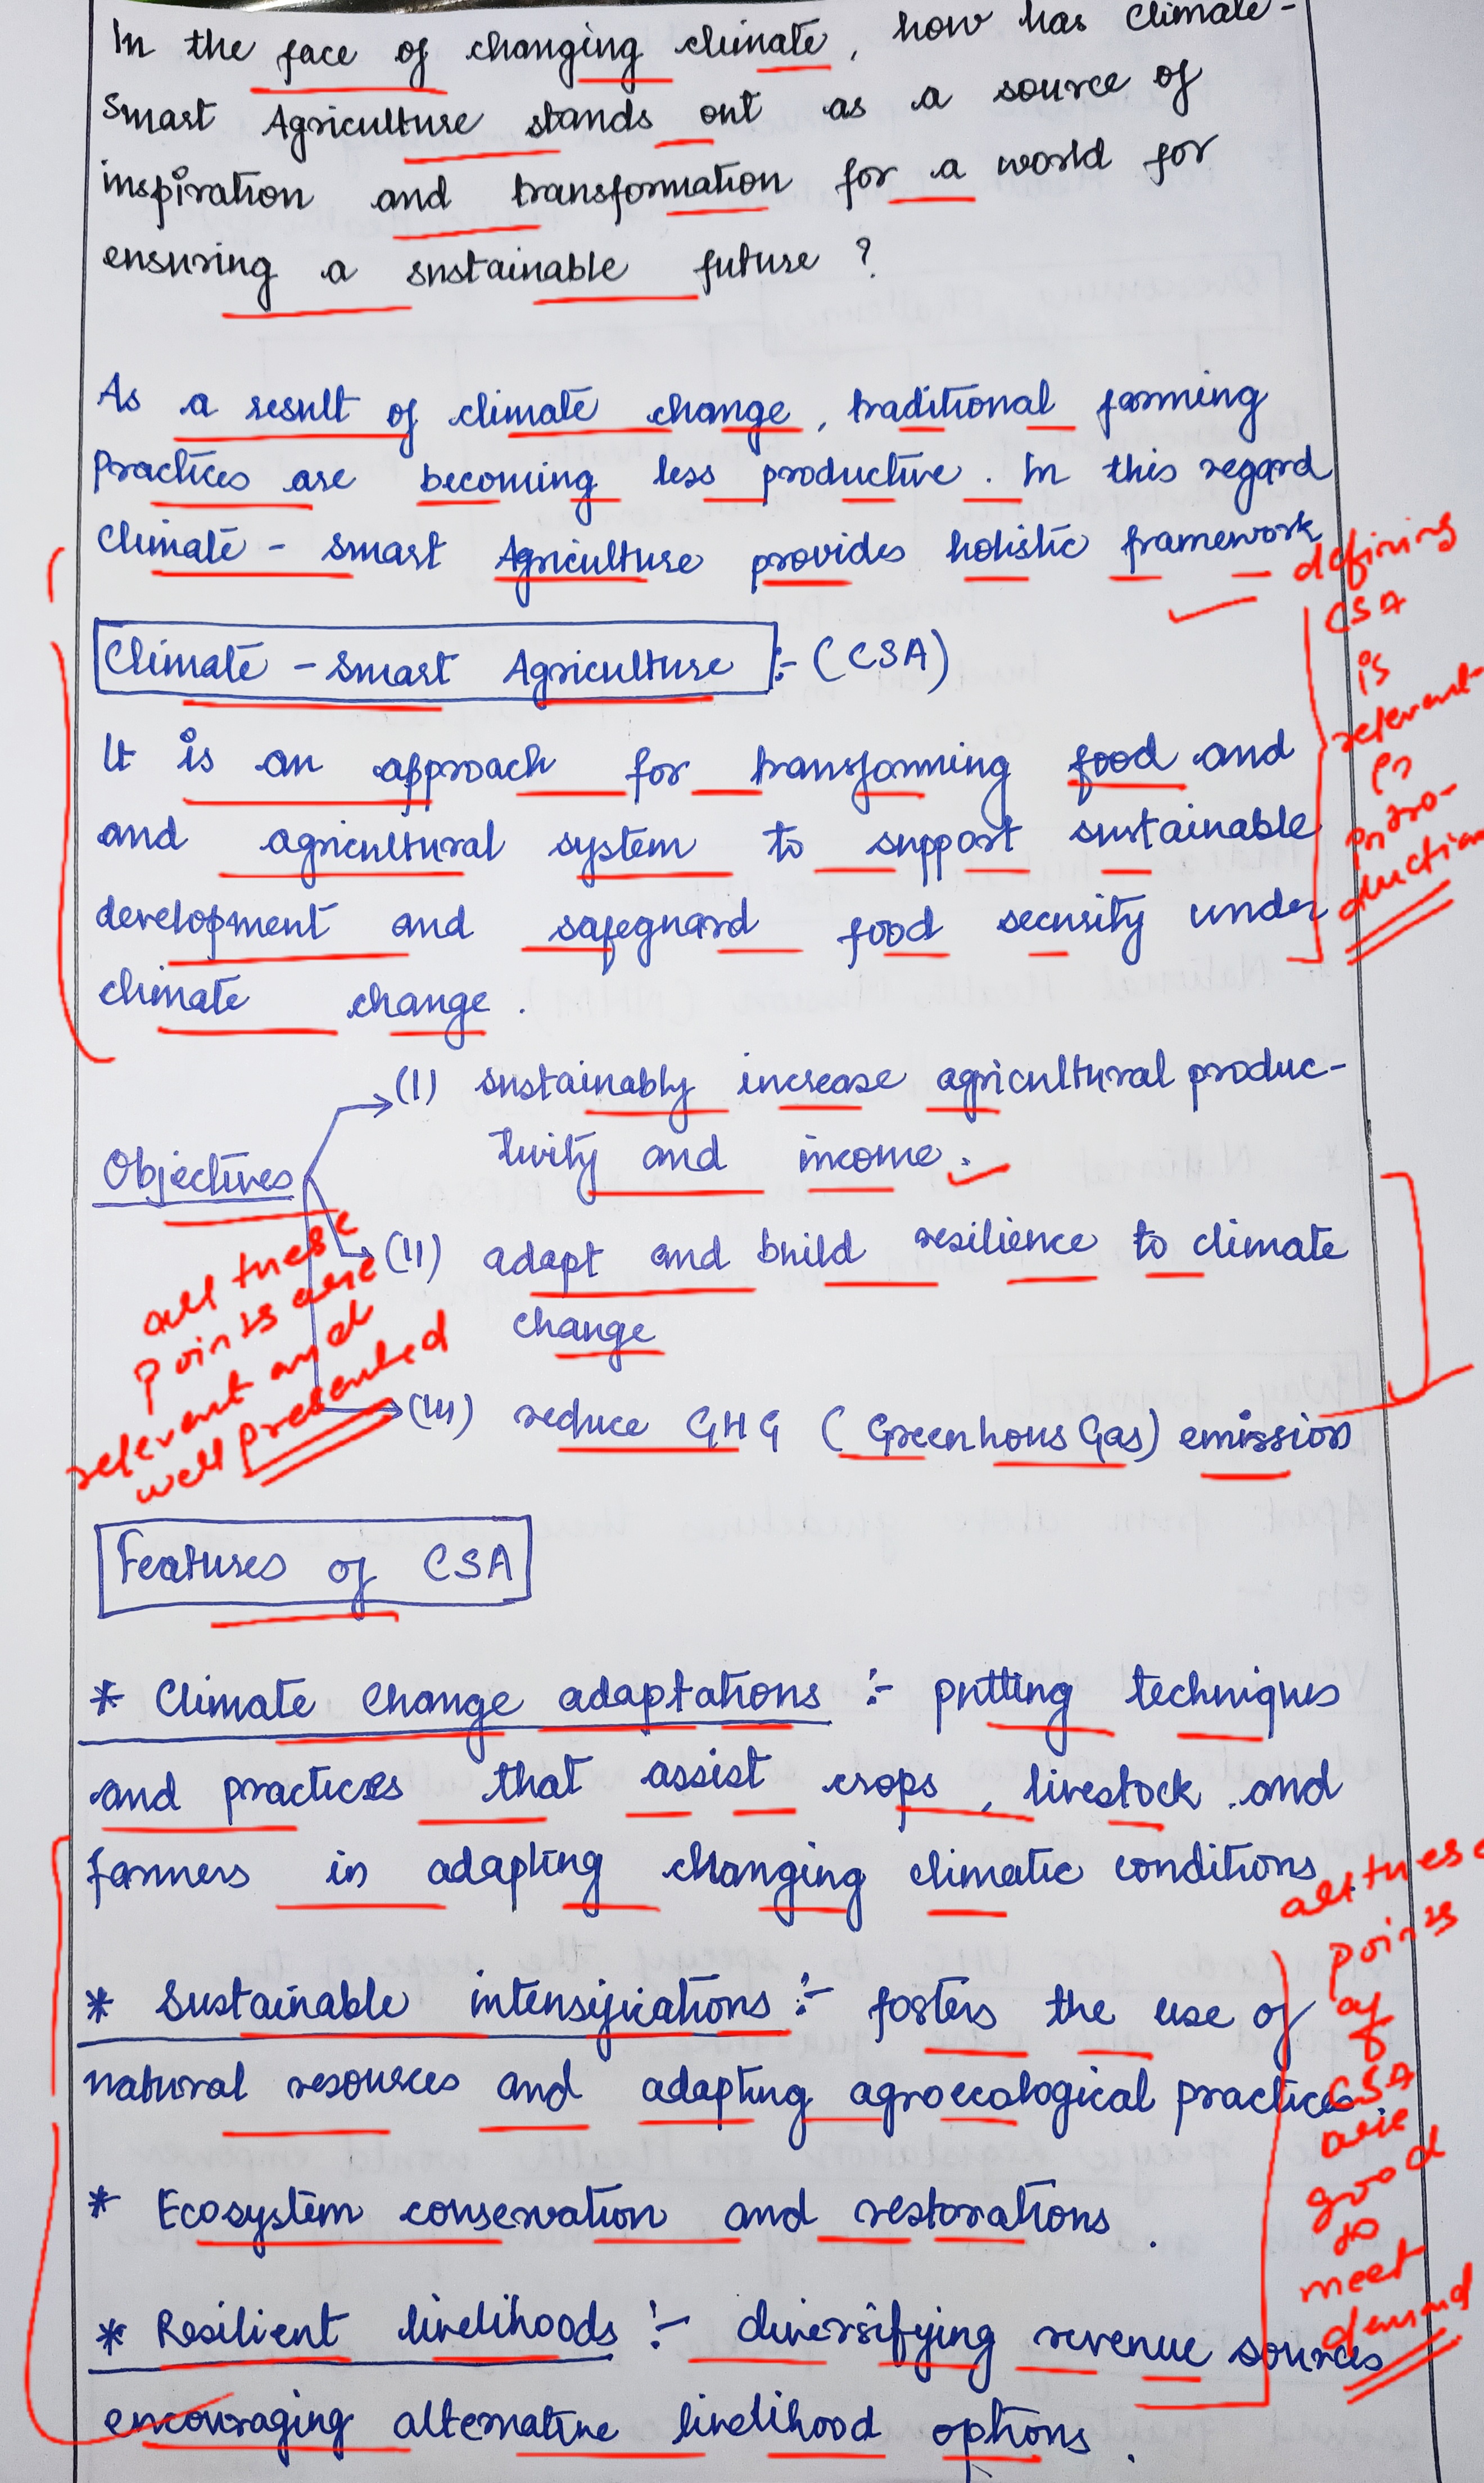 In the face of changing climate, how has climate-
Smart Agriculture stands out as a source of
inspiration and transformation for a world for
ensuring a sustainable future ?
As a result of climate change, traditional farming
Practices are becoming less productive. In this regard
Climate - smart Agriculture provides holistic framework
defining
CSA
is
relevant
Climate - Smart Agriculture :- (CSA)
It is an approach for transforming food and
and agricultural system to support sustainable
development and safeguard food security under
climate change.
in
intro-
duction
Objectives
(I) sustainably increase agricultural produc-
tivity and income.
(II) adapt and build resilience to climate
change
(III) reduce GHG (Greenhous Gas) emission
all these
points are
relevant and
well presented
Features of CSA
* Climate change adaptations :- putting techniques
and practices that assist crops, livestock and
farmers in adapting changing climatic conditions.
* Sustainable intensifications :- fosters the use of
natural resources and adapting agroecological practices.
* Ecosystem conservation and restorations.
* Resilient livelihoods :- diversifying revenue sources
encouraging alternative livelihood options.
all these
points
of
CSA
are
good
to
meet
demand